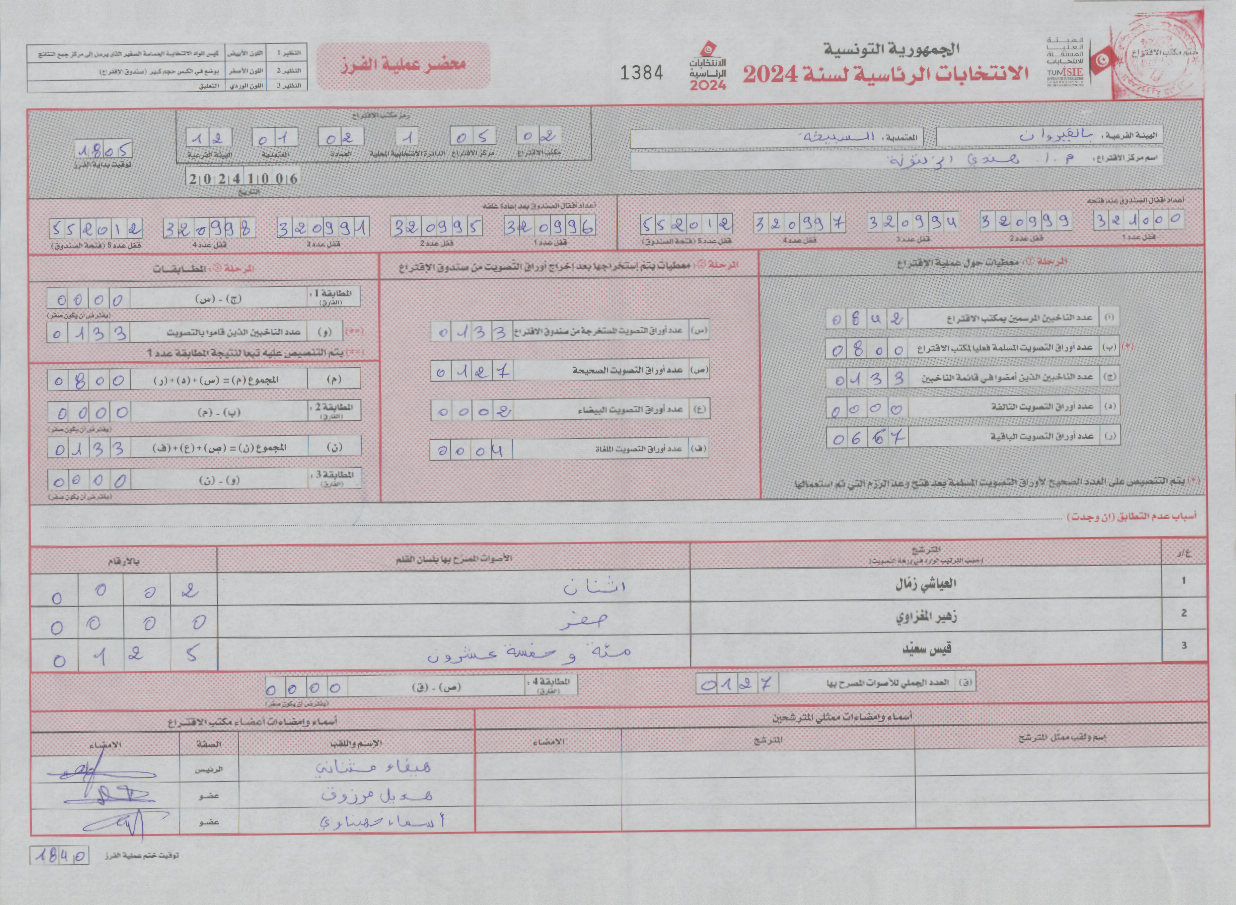 الجمهورية التونسية
الانتخابات الرئاسية لسنة 2024
الهيئة العليا المستقلة للانتخابات
TUNISIE
ختم مكتب الاقتراع
الانتخابات الرئاسية 2024
1384
محضر عملية الفرز
النظير 1 اللون الأبيض
النظير 2 اللون الأصفر يوضع في الكيس حجم كبير (صندوق الاقتراع)
النظير 3 اللون الوردي التعليق
الهيئة الفرعية : بالقيروان
المعتمدية : السبيخة
اسم مركز الاقتراع :
رمز مكتب الاقتراع
02 05 1 02 01 12
مكتب الاقتراع مركز الاقتراع الدائرة الانتخابية المحلية العمادة المعتمدية الهيئة الفرعية
20241006
التاريخ
1805
توقيت بداية الفرز
أعداد أقفال الصندوق عند فتحه
321000 320999 320994 320997 552012
قفل عدد 1 قفل عدد 2 قفل عدد 3 قفل عدد 4 قفل عدد 5 (فتحة الصندوق)
أعداد أقفال الصندوق بعد إعادة غلقه
320996 320995 320991 320998 552012
قفل عدد 1 قفل عدد 2 قفل عدد 3 قفل عدد 4 قفل عدد 5 (فتحة الصندوق)
المرحلة ① : معطيات حول عملية الإقتراع
(أ) عدد الناخبين المرسمين بمكتب الاقتراع 0842
(*) (ب) عدد أوراق التصويت المسلمة فعليا لمكتب الاقتراع 0800
(ج) عدد الناخبين الذين أمضوا في قائمة الناخبين 0133
(د) عدد أوراق التصويت التالفة 0000
(ر) عدد أوراق التصويت الباقية 0667
(*) يتم التنصيص على العدد الصحيح لأوراق التصويت المسلمة بعد فتح وعد الرزم التي تم استعمالها
المرحلة ② : معطيات يتم إستخراجها بعد إخراج أوراق التصويت من صندوق الاقتراع
(س) عدد أوراق التصويت المستخرجة من صندوق الاقتراع 0133
(ص) عدد أوراق التصويت الصحيحة 0127
(ع) عدد أوراق التصويت البيضاء 0002
(ف) عدد أوراق التصويت الملغاة 0004
المرحلة ③ : المطابقات
المطابقة 1 : (الفارق) (ج) - (س) 0000
(يفترض أن يكون صفر)
(**) (و) عدد الناخبين الذين قاموا بالتصويت 0133
(**) يتم التنصيص عليه تبعا لنتيجة المطابقة عدد 1
(م) المجموع (م) = (س) + (د) + (ر) 0800
المطابقة 2 : (الفارق) (ب) - (م) 0000
(يفترض أن يكون صفر)
(ن) المجموع (ن) = (ص) + (ع) + (ف) 0133
المطابقة 3 : (الفارق) (و) - (ن) 0000
(يفترض أن يكون صفر)
أسباب عدم التطابق (إن وجدت)
ع/ر المترشح الأصوات المصرح بها بلسان القلم بالأرقام
(حسب الترتيب الوارد في ورقة التصويت)
1 العياشي زمّال اثنان 0002
2 زهير المغزاوي صفر 0000
3 قيس سعيّد مئة و خمسة عشرون 0125
(ق) العدد الجملي للأصوات المصرح بها 0127
المطابقة 4 : (الفارق) (ص) - (ق) 0000
(يفترض أن يكون صفر)
أسماء وإمضاءات ممثلي المترشحين
إسم ولقب ممثل المترشح المترشح الامضاء
أسماء وإمضاءات أعضاء مكتب الاقتراع
الإسم واللقب الصفة الامضاء
هيفاء الرئيس
هديل مرزوق عضو
أسماء عضو
1840 توقيت ختم عملية الفرز